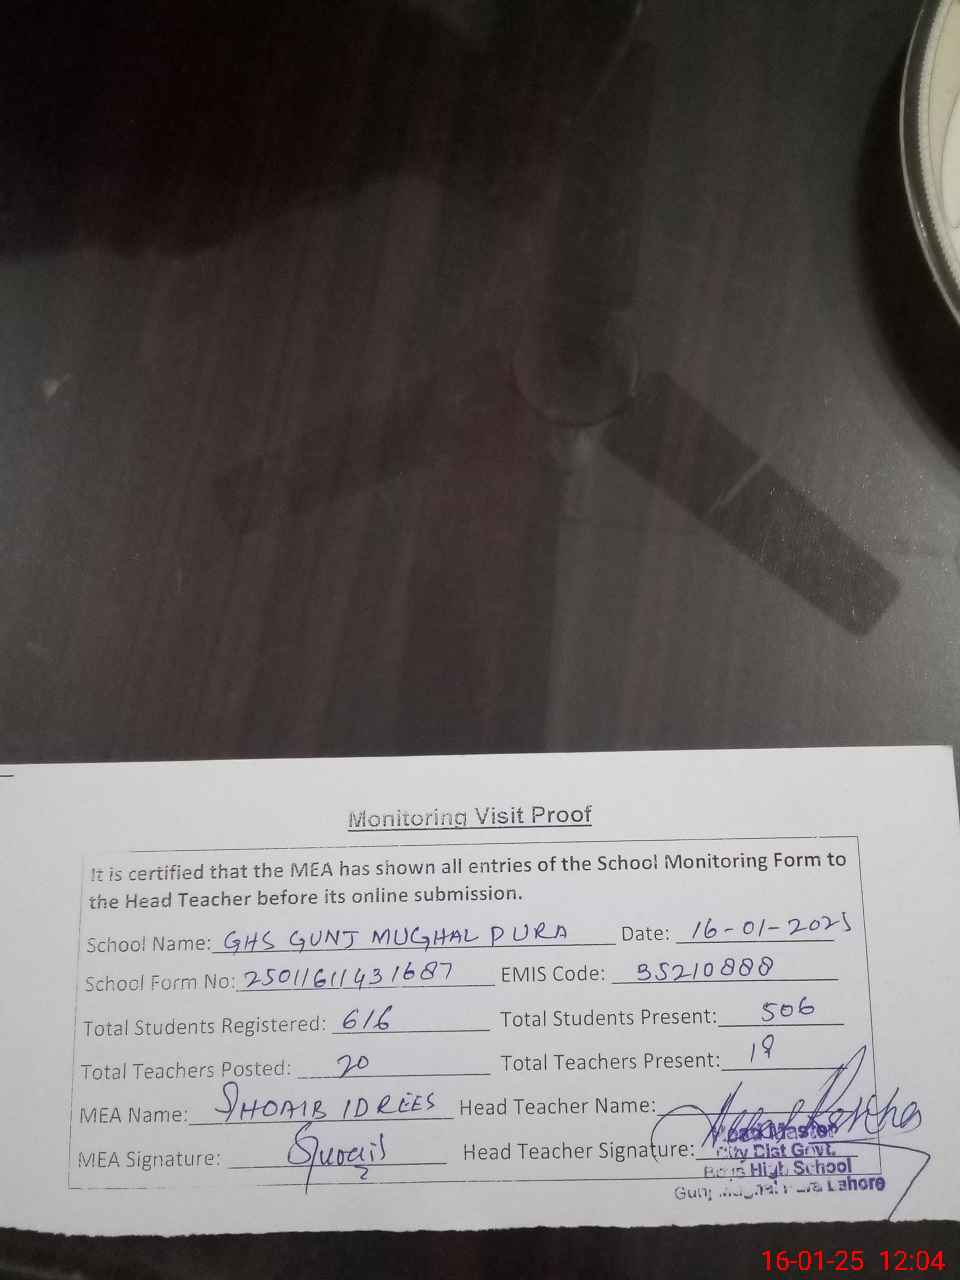 Monitoring Visit Proof
It is certified that the MEA has shown all entries of the School Monitoring Form to
the Head Teacher before its online submission.
School Name: GHS GUNJ MUGHAL PURA Date: 16-01-2025
School Form No: 25011611431687 EMIS Code: 35210888
Total Students Registered: 616 Total Students Present: 506
Total Teachers Posted: 20 Total Teachers Present: 19
MEA Name: SHOAIB IDREES Head Teacher Name:
MEA Signature: Head Teacher Signature:
Head Master
City Dist Govt.
Boys High School
Gunj Mughal Pura Lahore
16-01-25 12:04